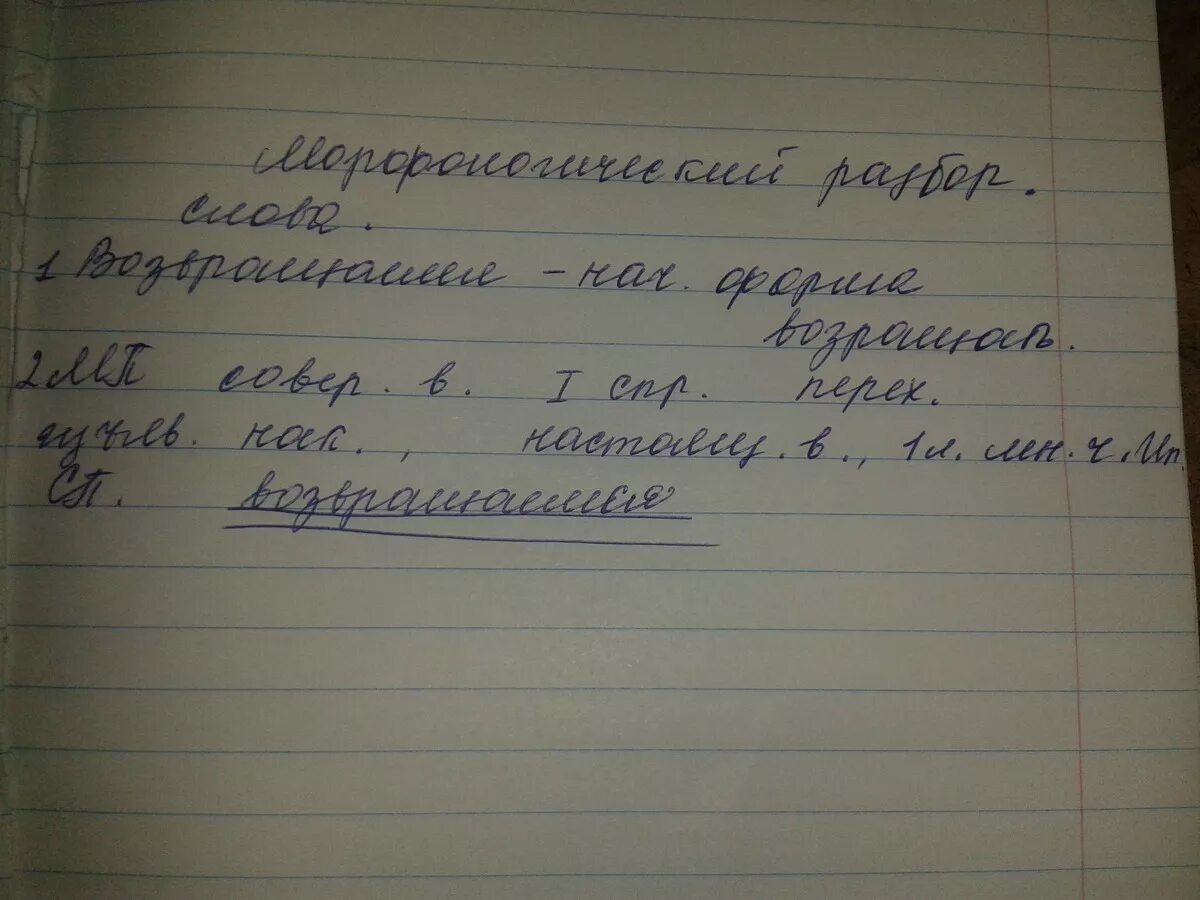 Морфологический разбор.
слова.
1 Возвращаемся - нач. форма
возращат.
2 МП совер. в. I спр. перех.
изъяв. нак., настоящ. в., 1 л. мн. ч. Ип.
СП. возвращаемся